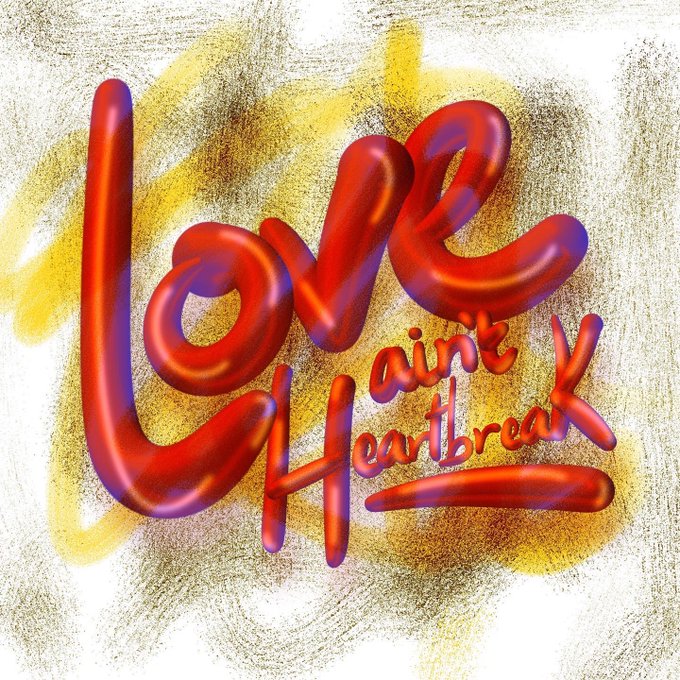 Love
ain't
HeartbreaK